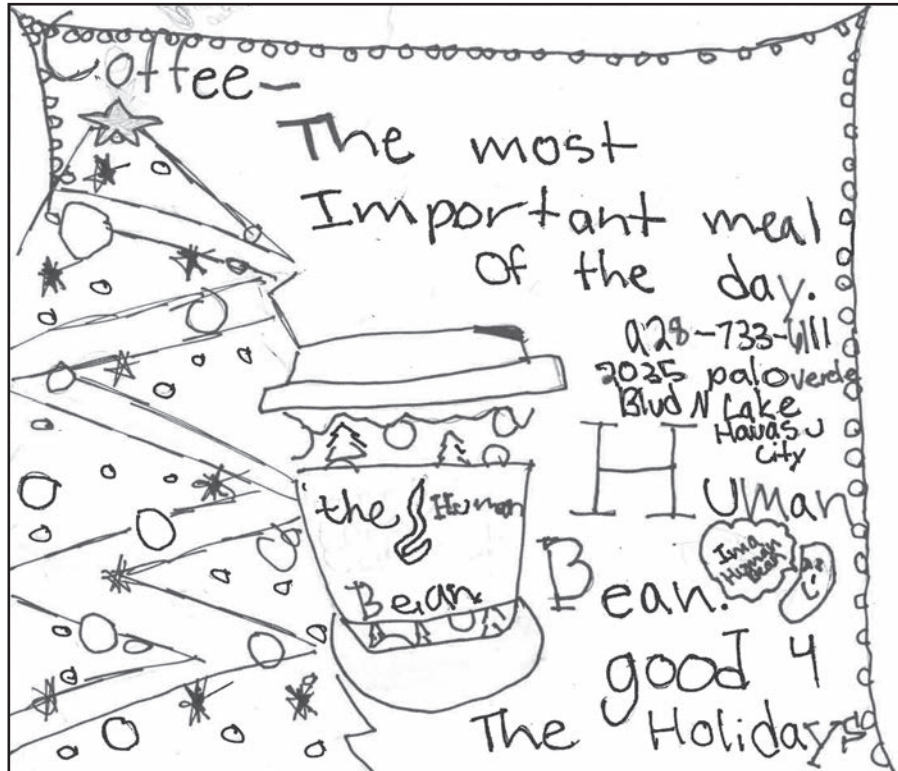 Coffee-
The most
Important meal
of the day.
928-733-6111
2035 palo verde
Blvd N Lake
Havasu
city
Human
the Human
Bean
Bean.
Im a
Human
Bean
good 4
The Holidays